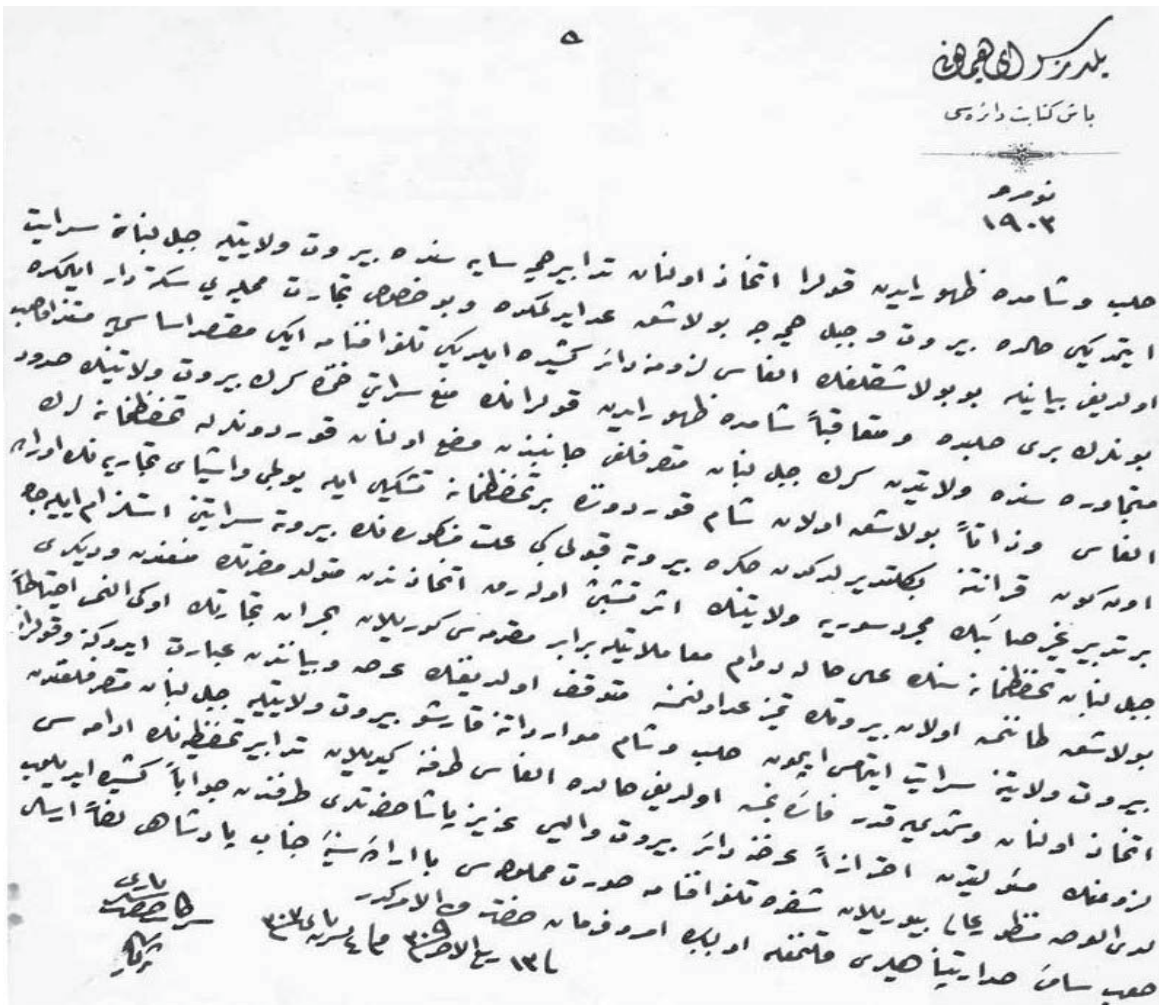 ٥
يلديز سراى همايونى
باش كتابت دائره‌سى
نومرو
١٩٠٣
حلب وشامده ظهور ايدن قولرا اتخاذ اولنان تدابير سايه سنده بيروت ولايتيله جبل لبنانه سرايت
ايتمديكى حالده بيروت وجبل بولاشق عد ايدلمكده وبو خصوص تجارت سكته دار ايلمكده
اولديغى بيانيله بو بولاشقلغك الغاسى لزومنه دائر كشيده ايلديكى تلغرافنامه
بوندن برى حلبده ومتعاقباً شامده ظهور ايدن قولرانك منع سرايتى ضمننده كرك بيروت ولايتنك حدود
متجاوره سنده ولايتدن كرك جبل لبنان متصرفلغى جانبندن وضع اولنان قوردونلرله تحفظخانه لرك
الغاسى وذاتاً بولاشق اولان شام قوردونده بر تحفظخانه تشكيلى ايله يولجى واشياى تجاريه نك اوراده
اون كون قرانتنه بكلتديرلدكدن صكره بيروته قبولى كبى علت مذكوره نك بيروته سرايتنى استلزام ايليه جك
بر تدبير غير صائبك مجرد سوريه ولايتنك اثر تشبثى اوله رق اتخاذندن متولد مضرتك منعندن وديكرى
جبل لبنان تحفظخانه سنك على حاله دوام معاملاتيله برابر مقدمه سى كوريلان بحران تجارتك اوكى النمق احتياطاً
بولاشق طاننمش اولان بيروتك تميز عد اولنمسنه متوقف اولديغنك عرض وبياندن عبارت ايدوكنه وقولرا
بيروت ولايتنه سرايت ايتمامسى ايچون حلب وشام موارداتنه قارشو بيروت ولايتيله جبل لبنان متصرفلغندن
اتخاذ اولنان وشمديه قدر اولديغى حالده الغاسى طرفنه كيديلان تدابير تحفظيه نك ادامه سى
لزومنك مسئوليتدن احترازاً عرضنه دائر بيروت واليسى عزيز پاشا حضرتلرى طرفندن جواباً كشيده ايديلوب
لدى العرض منظور عالى بيوريلان شفره تلغرافنامه صورت محلوله سى با اراده سنيه جناب پادشاهى لفاً ارسال
صوب سامئ صدارتپناهيلرى قلنمغله اولبابده امر وفرمان حضرت ولى الامركدر
فى ١٣ ربيع الاخر سنه ٣٠٩ وفى ٤ تشرين ثانى سنه ٣٠٧
سركاتب حضرت شهريارى